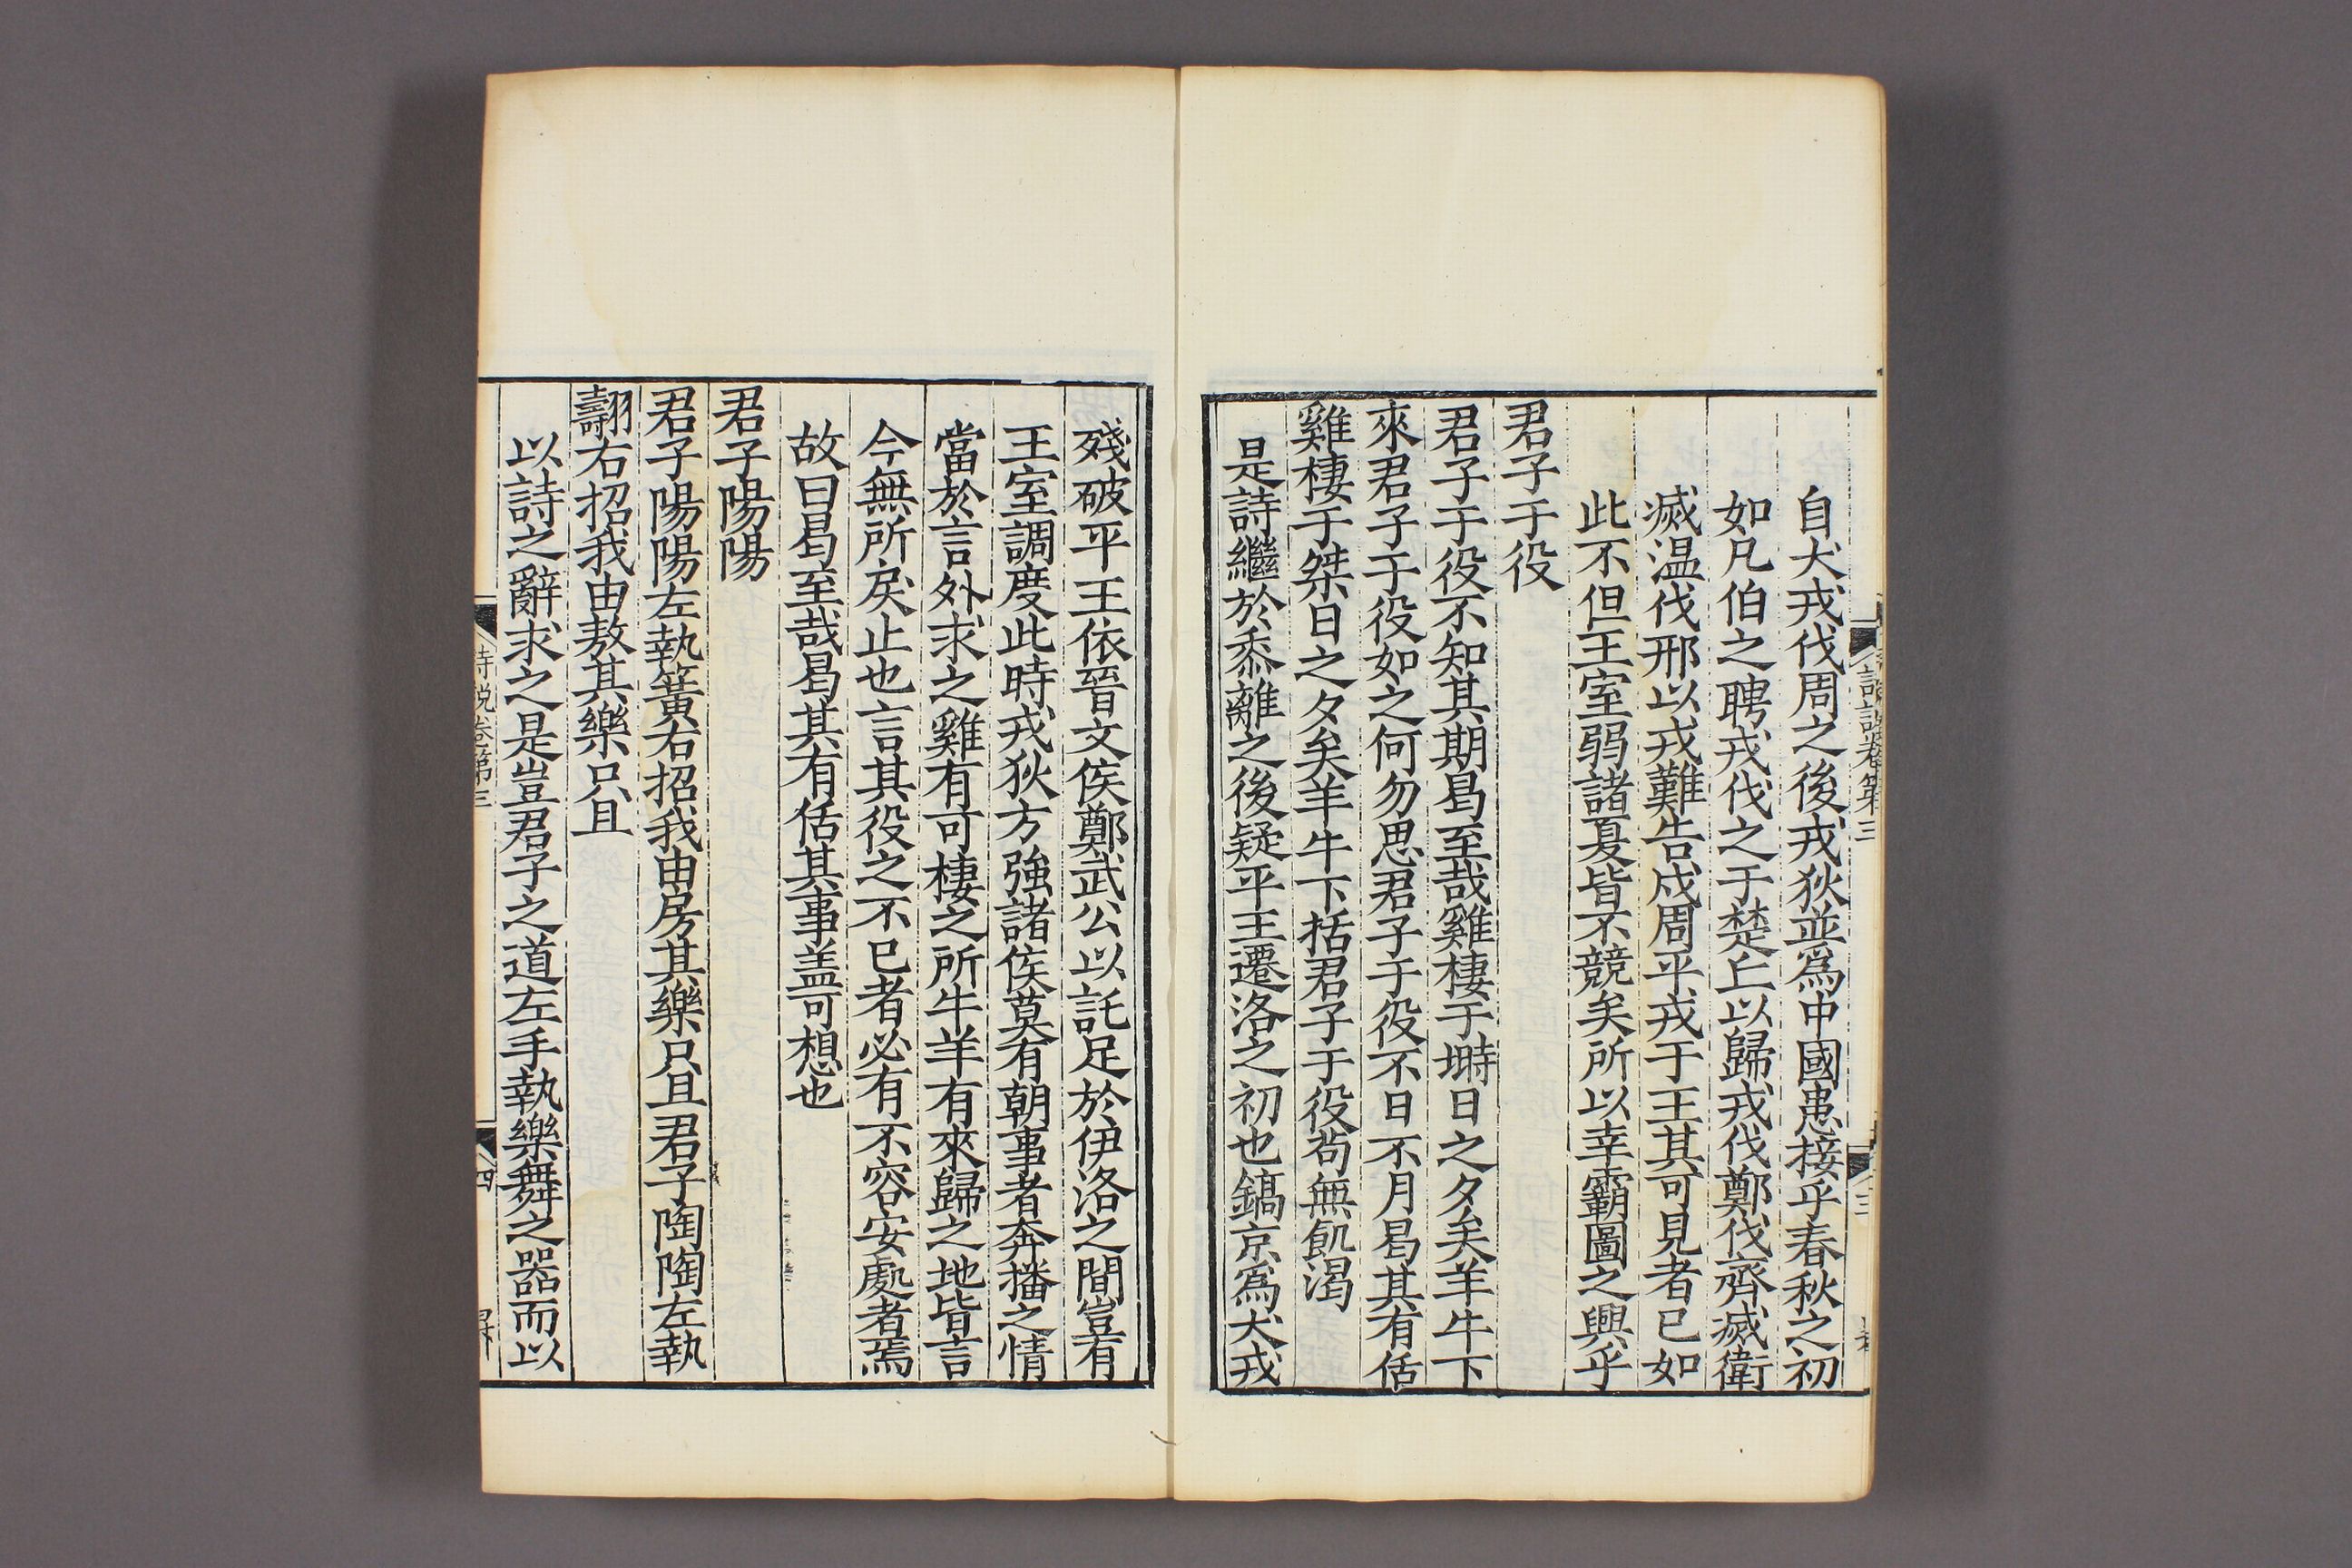 自犬戎伐周之後戎狄並爲中國患接乎春秋之初
如凡伯之聘戎伐之于楚丘以歸戎伐鄭伐齊滅衛
滅温伐邢以戎難告戍周平戎于王其可見者已如
此不但王室弱諸夏皆不競矣所以幸霸圖之興乎
君子于役
君子于役不知其期曷至哉雞棲于塒日之夕矣羊牛下
來君子于役如之何勿思君子于役不日不月曷其有佸
雞棲于桀日之夕矣羊牛下括君子于役苟無飢渴
是詩繼於黍離之後疑平王遷洛之初也鎬京爲犬戎
殘破平王依晉文侯鄭武公以託足於伊洛之間豈有
王室調度此時戎狄方強諸侯莫有朝事者奔播之情
當於言外求之雞有可棲之所牛羊有來歸之地皆言
今無所戾止也言其役之不已者必有不容安處者焉
故曰曷至哉曷其有佸其事盖可想也
君子陽陽
君子陽陽左執簧右招我由房其樂只且君子陶陶左執
翿右招我由敖其樂只且
以詩之辭求之是豈君子之道左手執樂舞之器而以
詩説卷第三
四